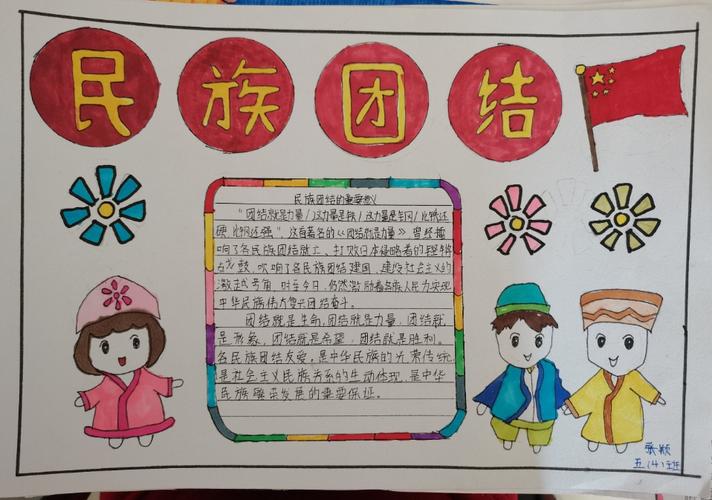 民族团结
民族团结的重要意义
“团结就是力量/这力量是铁/这力量是钢/比铁还
硬比钢还强”。这首著名的《团结就是力量》曾经擂
响了各民族团结
打败日本侵略者的
战鼓，吹响了各民族团结建国，建设社会主义的
激越号角，时至今日，仍然激励着各族人民为实现
中华民族伟大复兴团结奋斗。
团结就是生命，团结就是力量，团结就
是形象，团结就是希望，团结就是胜利。
各民族团结友爱，是中华民族的光荣传统，
是社会主义民族关系的生动体现，是中华
民族繁荣发展的重要保证。
五(4)班